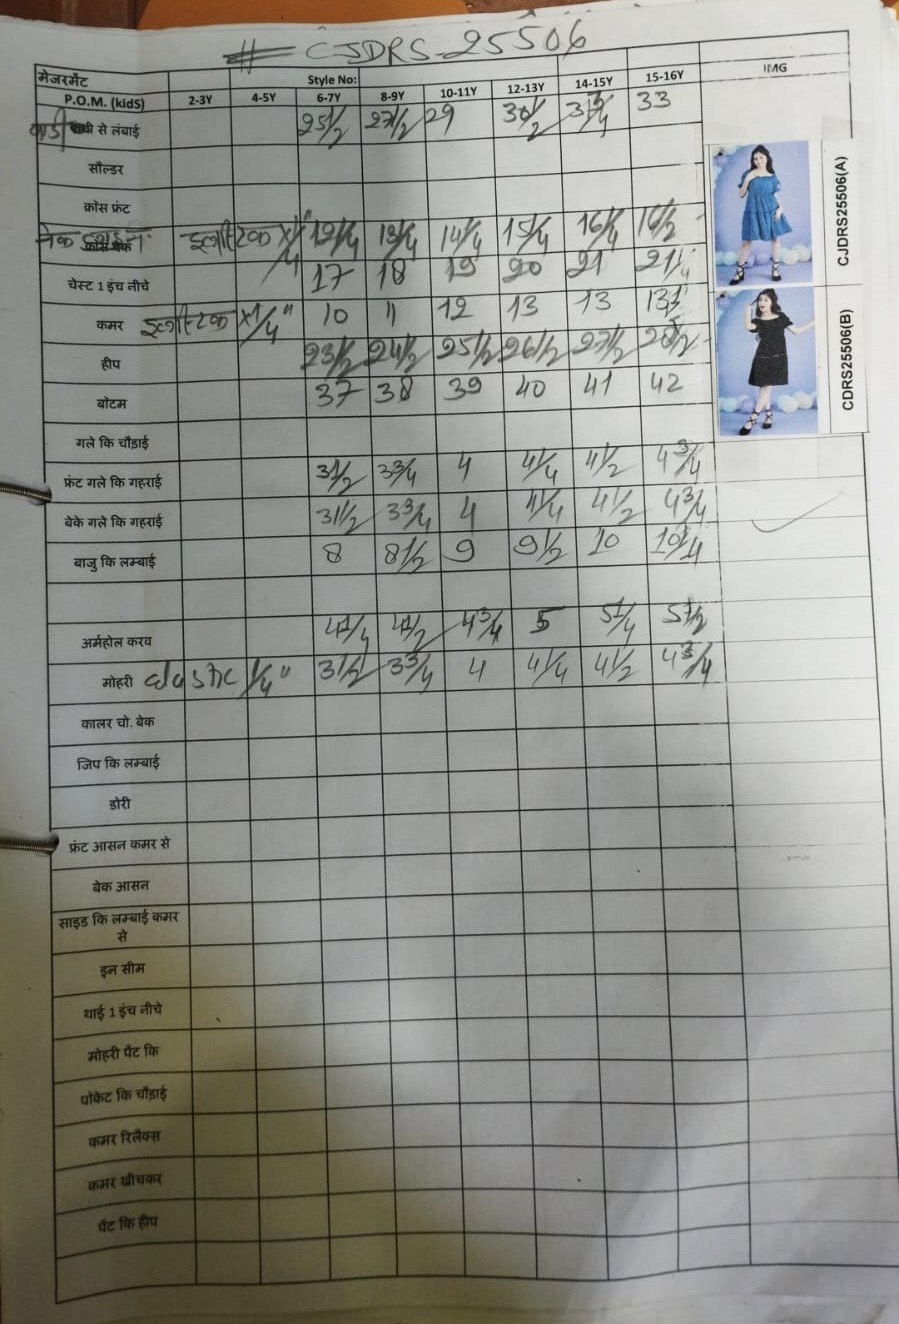 # CJDRS-25506
मेजरमेंट Style No: IMG
P.O.M. (kidS) 2-3Y 4-5Y 6-7Y 8-9Y 10-11Y 12-13Y 14-15Y 15-16Y
से लंबाई 25 1/2 27 1/2 29 30 1/2 31 3/4 33
सौल्डर
क्रोस फ्रंट
नेक इलास्टिक X 1/4" 12 1/4 13 1/4 14 1/4 15 1/4 16 1/4 16 1/2
चेस्ट 1 इंच नीचे 17 18 19 20 21 21 1/4
कमर इलास्टिक X 1/4" 10 11 12 13 13 13 1/2
हीप 23 1/2 24 1/2 25 1/2 26 1/2 27 1/2 28 1/2
बॉटम 37 38 39 40 41 42
गले कि चौड़ाई
फ्रंट गले कि गहराई 3 1/2 3 3/4 4 4 1/4 4 1/2 4 3/4
बेके गले कि गहराई 3 1/2 3 3/4 4 4 1/4 4 1/2 4 3/4
बाजु कि लम्बाई 8 8 1/2 9 9 1/2 10 10 1/4
अर्महोल करव 4 1/4 4 1/2 4 3/4 5 5 1/4 5 1/2
मोहरी elastic 1/4" 3 1/2 3 3/4 4 4 1/4 4 1/2 4 3/4
कालर चो. बेक
जिप कि लम्बाई
डोरी
फ्रंट आसन कमर से
बेक आसन
साइड कि लम्बाई कमर
से
इन सीम
थाई 1 इंच नीचे
मोहरी पैंट कि
पॉकेट कि चौड़ाई
कमर रिलैक्स
कमर खीचकर
पेंट कि हीप
CJDRS25506(A)
CDRS25506(B)